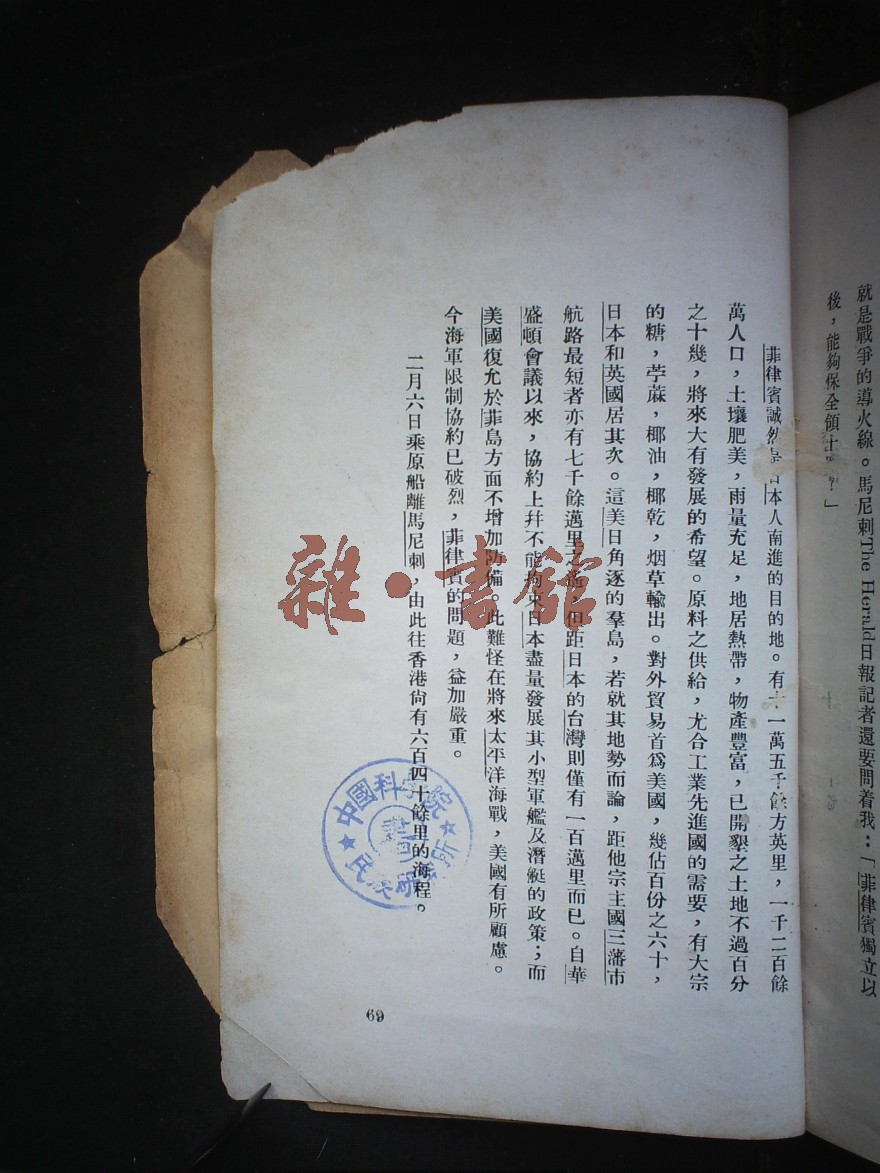 就是戰爭的導火線。馬尼剌The Herald日報記者還要問着我：「菲律賓獨立以
後，能夠保全領土？」
菲律賓誠然是日本人南進的目的地。有十一萬五千餘方英里，一千二百餘
萬人口，土壤肥美，雨量充足，地居熱帶，物產豐富，已開墾之土地不過百分
之十幾，將來大有發展的希望。原料之供給，尤合工業先進國的需要，有大宗
的糖，苧蔴，椰油，椰乾，烟草輸出。對外貿易首爲美國，幾佔百份之六十，
日本和英國居其次。這美日角逐的羣島，若就其地勢而論，距他宗主國三藩市
航路最短者亦有七千餘邁里之遙，但距日本的台灣則僅有一百邁里而已。自華
盛頓會議以來，協約上幷不能拘束日本盡量發展其小型軍艦及潛艇的政策；而
美國復允於菲島方面不增加防備。此難怪在將來太平洋海戰，美國有所顧慮。
今海軍限制協約已破烈，菲律賓的問題，益加嚴重。
二月六日乘原船離馬尼剌，由此往香港尙有六百四十餘里的海程。
69
中國科學院
民族研究所
雜·書館